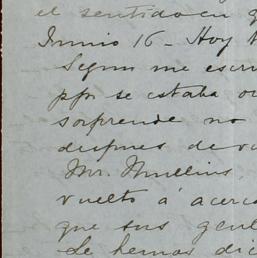 el sentido en q
Junio 16 - Hoy
Segun me escri
ppi se estaba o
sorprende no
despues de v
Mr. Mullins
vuelto á acerc
que sus gent
Le hemos dic